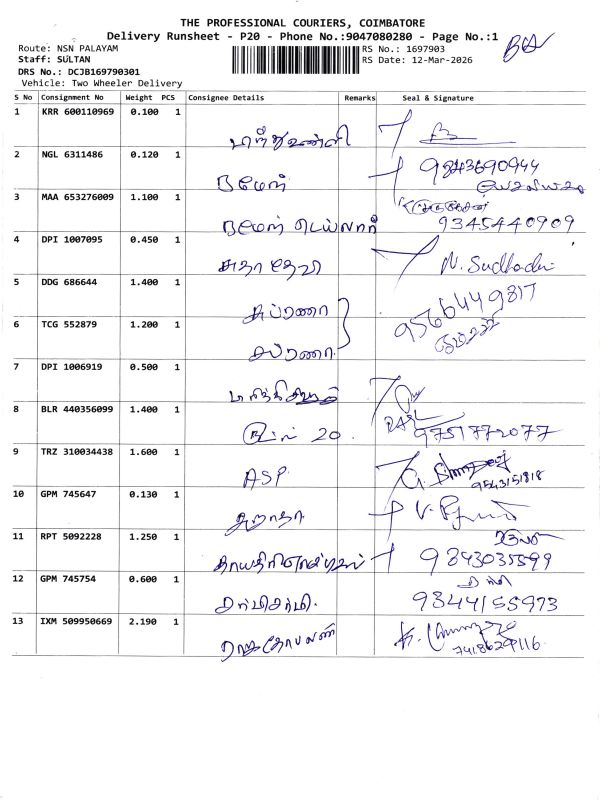 THE PROFESSIONAL COURIERS, COIMBATORE
Delivery Runsheet - P20 - Phone No.:9047080280 - Page No.:1
Route: NSN PALAYAM
RS No.: 1697903
Staff: SULTAN
RS Date: 12-Mar-2026
DRS No.: DCJB169790301
Vehicle: Two Wheeler Delivery
S No Consignment No Weight PCS Consignee Details Remarks Seal & Signature
1 KRR 600110969 0.100 1
2 NGL 6311486 0.120 1 ரமேஷ் 9843690944
3 MAA 653276009 1.100 1 ரமேஷ் டெய்லர் 9345440909
4 DPI 1007095 0.450 1 சுதா தேவி N. Sudhadevi
5 DDG 686644 1.400 1 சுப்ரணா 9566449817
6 TCG 552879 1.200 1 சுப்ரணா
7 DPI 1006919 0.500 1
8 BLR 440356099 1.400 1 20 9751772077
9 TRZ 310034438 1.600 1 ASP 9543151818
10 GPM 745647 0.130 1
11 RPT 5092228 1.250 1 9843035599
12 GPM 745754 0.600 1 9344155973
13 IXM 509950669 2.190 1 7418629116